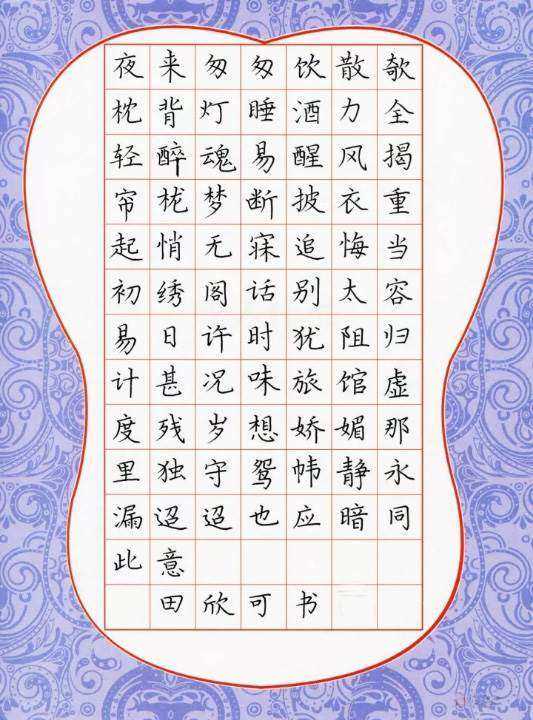 夜来匆匆饮散欹
枕背灯睡酒力全
轻醉魂易醒风揭
帘栊梦断披衣重
起悄无寐追悔当
初绣阁话别太容
易日许时犹阻归
计甚况味旅馆虚
度残岁想娇媚那
里独守鸳帏静永
漏迢迢也应暗同
此意
田欣可书